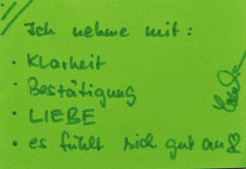 Ich nehme mit:
• Klarheit
• Bestätigung
• LIEBE
• es fühlt sich gut an♡